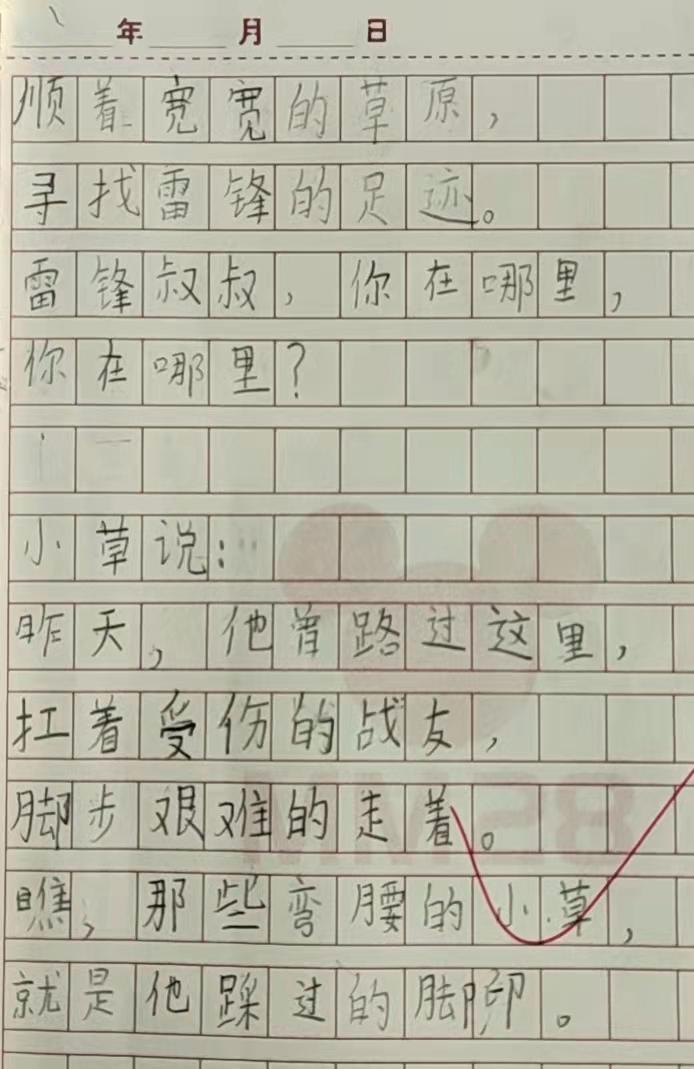 年 月 日
顺着宽宽的草原，
寻找雷锋的足迹。
雷锋叔叔，你在哪里，
你在哪里？
小草说：
昨天，他曾路过这里，
扛着受伤的战友，
脚步艰难的走着。
瞧，那些弯腰的小草，
就是他踩过的脚印。